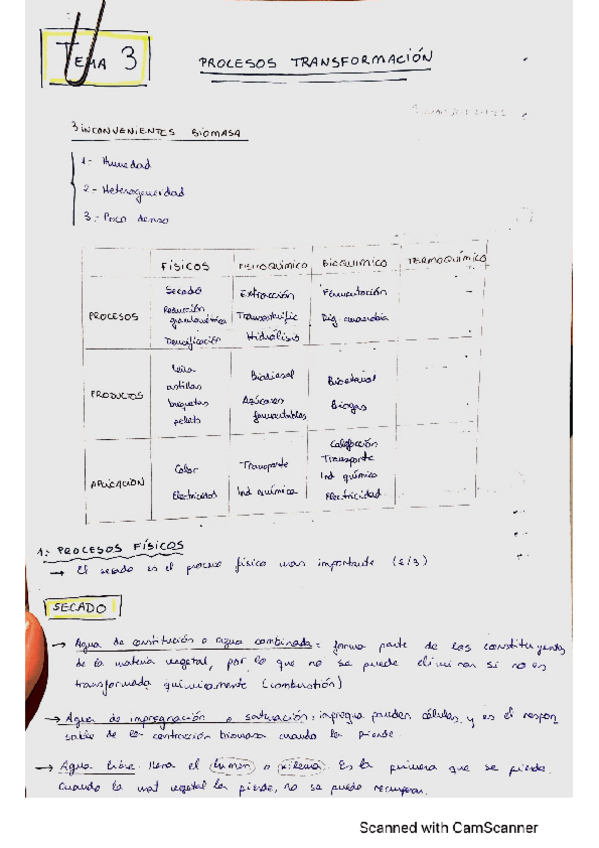 TEMA 3
PROCESOS TRANSFORMACIÓN
3 INCONVENIENTES BIOMASA
1.- Humedad
2.- Heterogeneidad
3.- Poco denso
FÍSICOS FISICOQUÍMICO BIOQUÍMICO TERMOQUÍMICO
PROCESOS
Secado
Reducción granulométrica
Densificación
Extracción
Transesterific
Hidrólisis
Fermentación
Dig. anaerobia
PRODUCTOS
leña
astillas
briquetas
pellets
Biodiesel
Azúcares fermentables
Bioetanol
Biogas
APLICACIÓN
Calor
Electricidad
Transporte
Ind química
Calefacción
Transporte
Ind química
Electricidad
1: PROCESOS FÍSICOS
→ El secado es el proceso físico mas importante
SECADO
→ Agua de constitución o agua combinada: forma parte de los constituyentes
de la materia vegetal, por lo que no se puede eliminar si no es
transformada químicamente (combustión)
→ Agua de impregnación o saturación: impregna paredes células, y es el respon
sable de la contracción biomasa cuando la pierde.
→ Agua libre: llena el lumen o xilema. Es la primera que se pierde.
Cuando la mat vegetal la pierde, no se puede recuperar.
Scanned with CamScanner